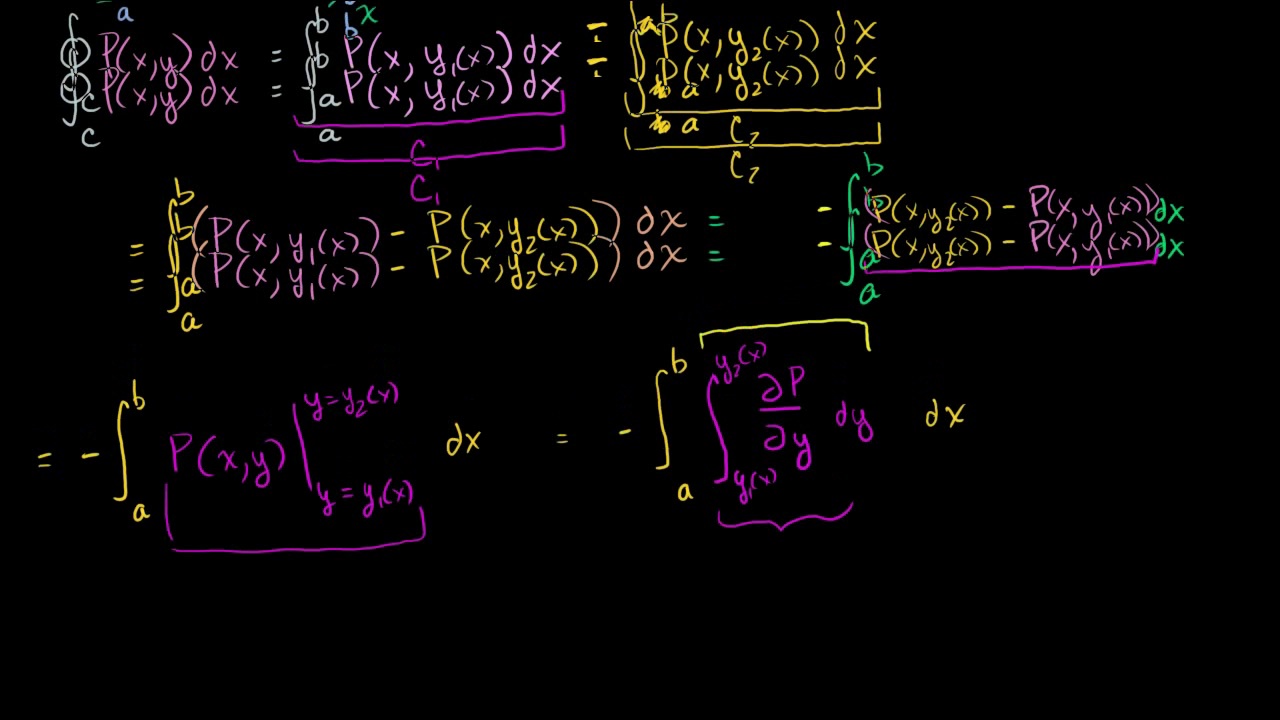 a b x
∮_C P(x,y) dx = ∫_a^b P(x, y₁(x)) dx − ∫_a^b P(x, y₂(x)) dx
C₁ C₂
= ∫_a^b (P(x, y₁(x)) − P(x, y₂(x))) dx = − ∫_a^b (P(x,y₂(x)) − P(x,y₁(x))) dx
= − ∫_a^b P(x,y) |_{y = y₁(x)}^{y = y₂(x)} dx = − ∫_a^b ∫_{y₁(x)}^{y₂(x)} ∂P/∂y dy dx